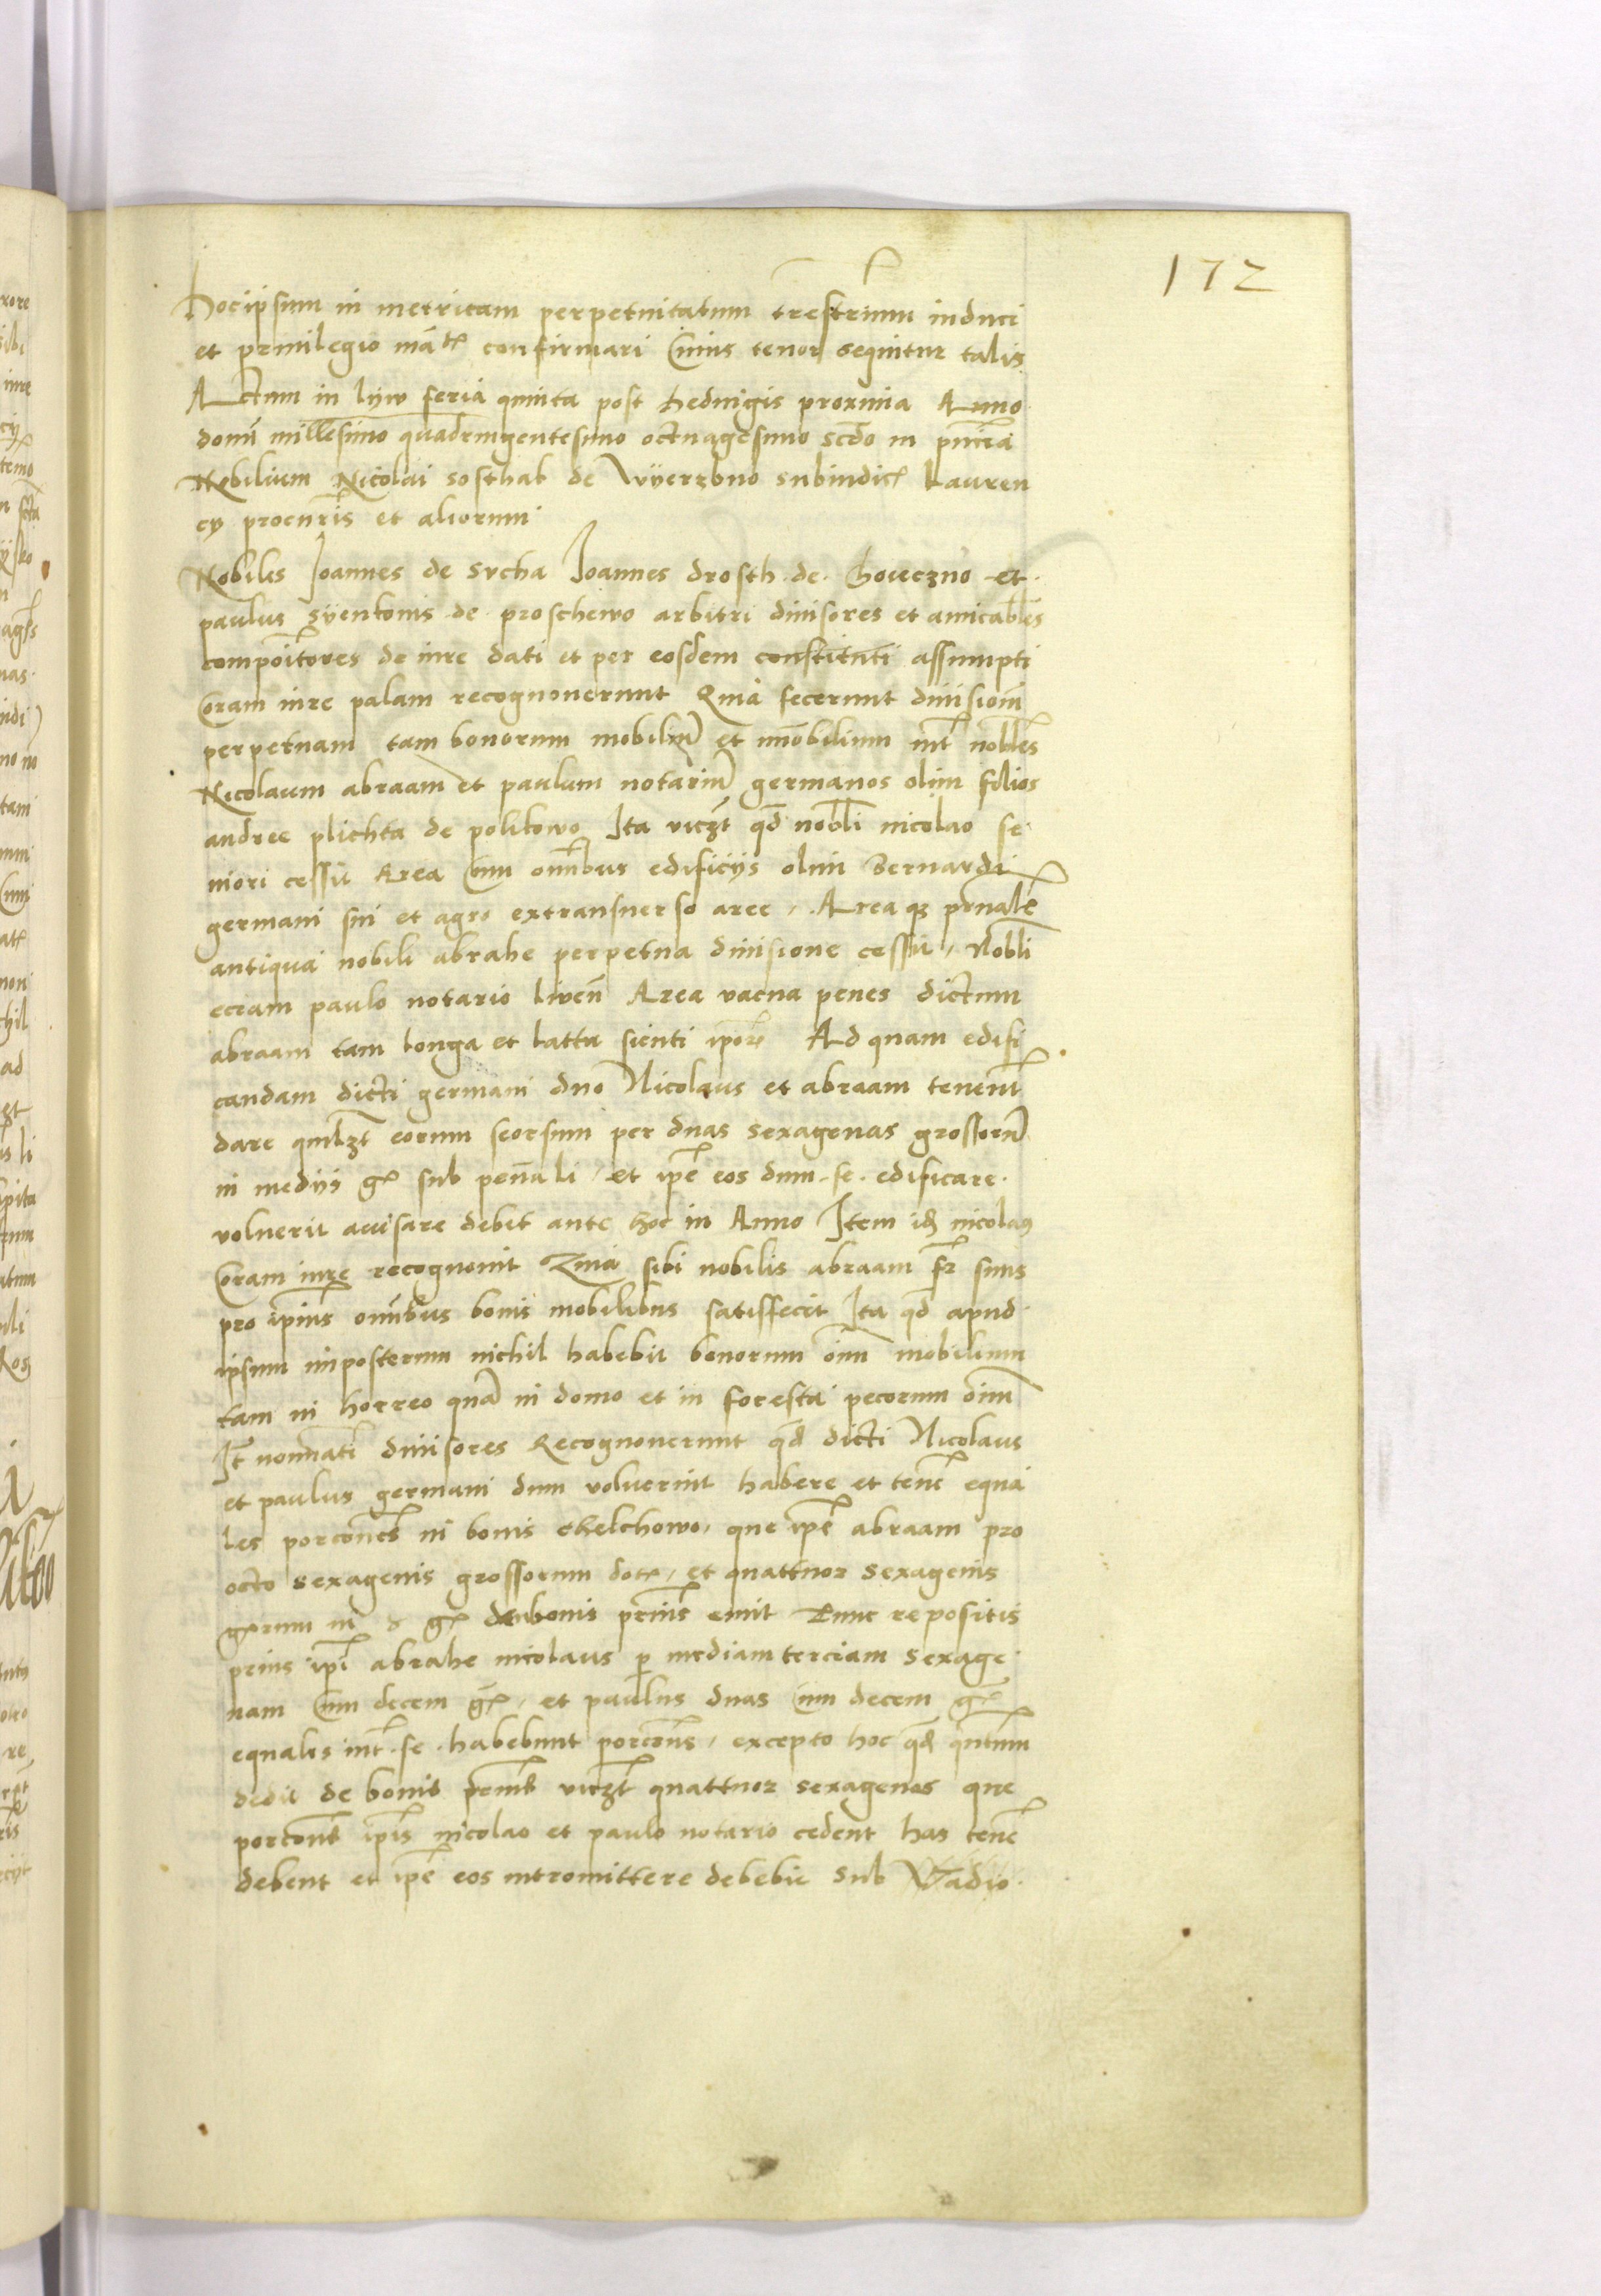 172
Hocipsum in metricam perpetuitatum trestrium induci
et priuilegio mate confirmari Cuius tenor sequitur talis
Actum in lijw feria quinta post hedwigis proxima Anno
domi millesimo quadringentesimo octuagesimo scdo in pnтia
Nobilium Nicolai sosthak de Wÿerzbno subiudic Lauren
cy procuris et aliorum
Nobiles Joannes de sucha Joannes drosth de Choieczno et
paulus sÿenkonis de proschewo arbitri diuisores et amicabiles
compoitores de iure dati et per eosdem constituti assumpti
Coram iure palam recognouerunt Quia fecerunt diuisiom
perpetuam tam bonorum mobiliu et immobilium int nobles
Nicolaum abraam et paulum notariu germanos olim filios
andree plichta de polikowo Ita viczt qd nobli nicolao se
niori cessit Area Cum omibus edificijs olim Bernardi
germani sui et agro extransuerso aree, Area qz prnale
antiqua nobili abrahe perpetua diuisione cessit, Nobli
eciam paulo notario liuen Area vacua penes dictum
abraam tam longa et latta sicuti ipor Ad quam edifi
candam dicti germani duo Nicolaus et abraam tenent
dare quilzt eorum seorsum per duas sexagenas grossoru
in medijs g sub penali, et ipe eos dum se edificare
voluerit auisare debit ante hoc in Anno Item id nicolaus
Coram iure recognouit Quia sibi nobilis abraam fr suus
pro ipius omibus bonis mobilibus satisfecit Ita qd apud
ipsum inposterum nichil habebit bonorum oim mobilium
tam in horreo qua in domo et in foresta pecorum oim
It nominati diuisores Recognouerunt qd dicti Nicolaus
et paulus germani dum voluerint habere et tene equa
les porcones in bonis chelchowo, que ipe abraam pro
octo sexagenis grossorum dote, et quattuor sexagenis
grorum in g de bonis prius emit Tunc repositis
prius ipi abrahe nicolaus p mediam terciam sexage
nam Cum decem g, et paulus duas Cum decem g
equales int se habebunt porcones, excepto hoc qd quntum
dedit de bonis viczt quattuor sexagenas que
porcones ipis nicolao et paulo notario cedent has tene
debent et ipe eos intromittere debebit sub Vadio